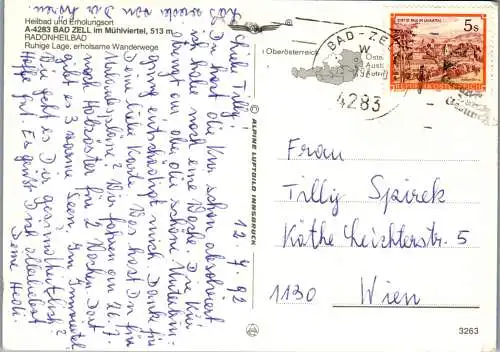 Heilbad und Erholungsort
A-4283 BAD ZELL im Mühlviertel, 513 m
RADONHEILBAD
Ruhige Lage, erholsame Wanderwege
© ALPINE LUFTBILD INNSBRUCK
12.7.92
Liebe Tilly!
Du hast die Kur schon absolviert
ich habe noch eine Woche. Die Kur
strengt an aber die schöne
entschädigt mich. Danke für
Deine liebe Karte. Was hast Du für
Urlaubspläne? Wir fahren am 26.7.
nach für 2 Wochen. Dort
gibt es 3 warme Seen.
Wie geht es Dir gesundheitlich?
gut. Es grüßt Dich allerliebst
Deine Hedi.
BAD ZELL
Oberösterreich
4283
5s
REPUBLIK ÖSTERREICH
Frau
Tilly Spirek
Käthe Leichterstr. 5
1130 Wien
3263